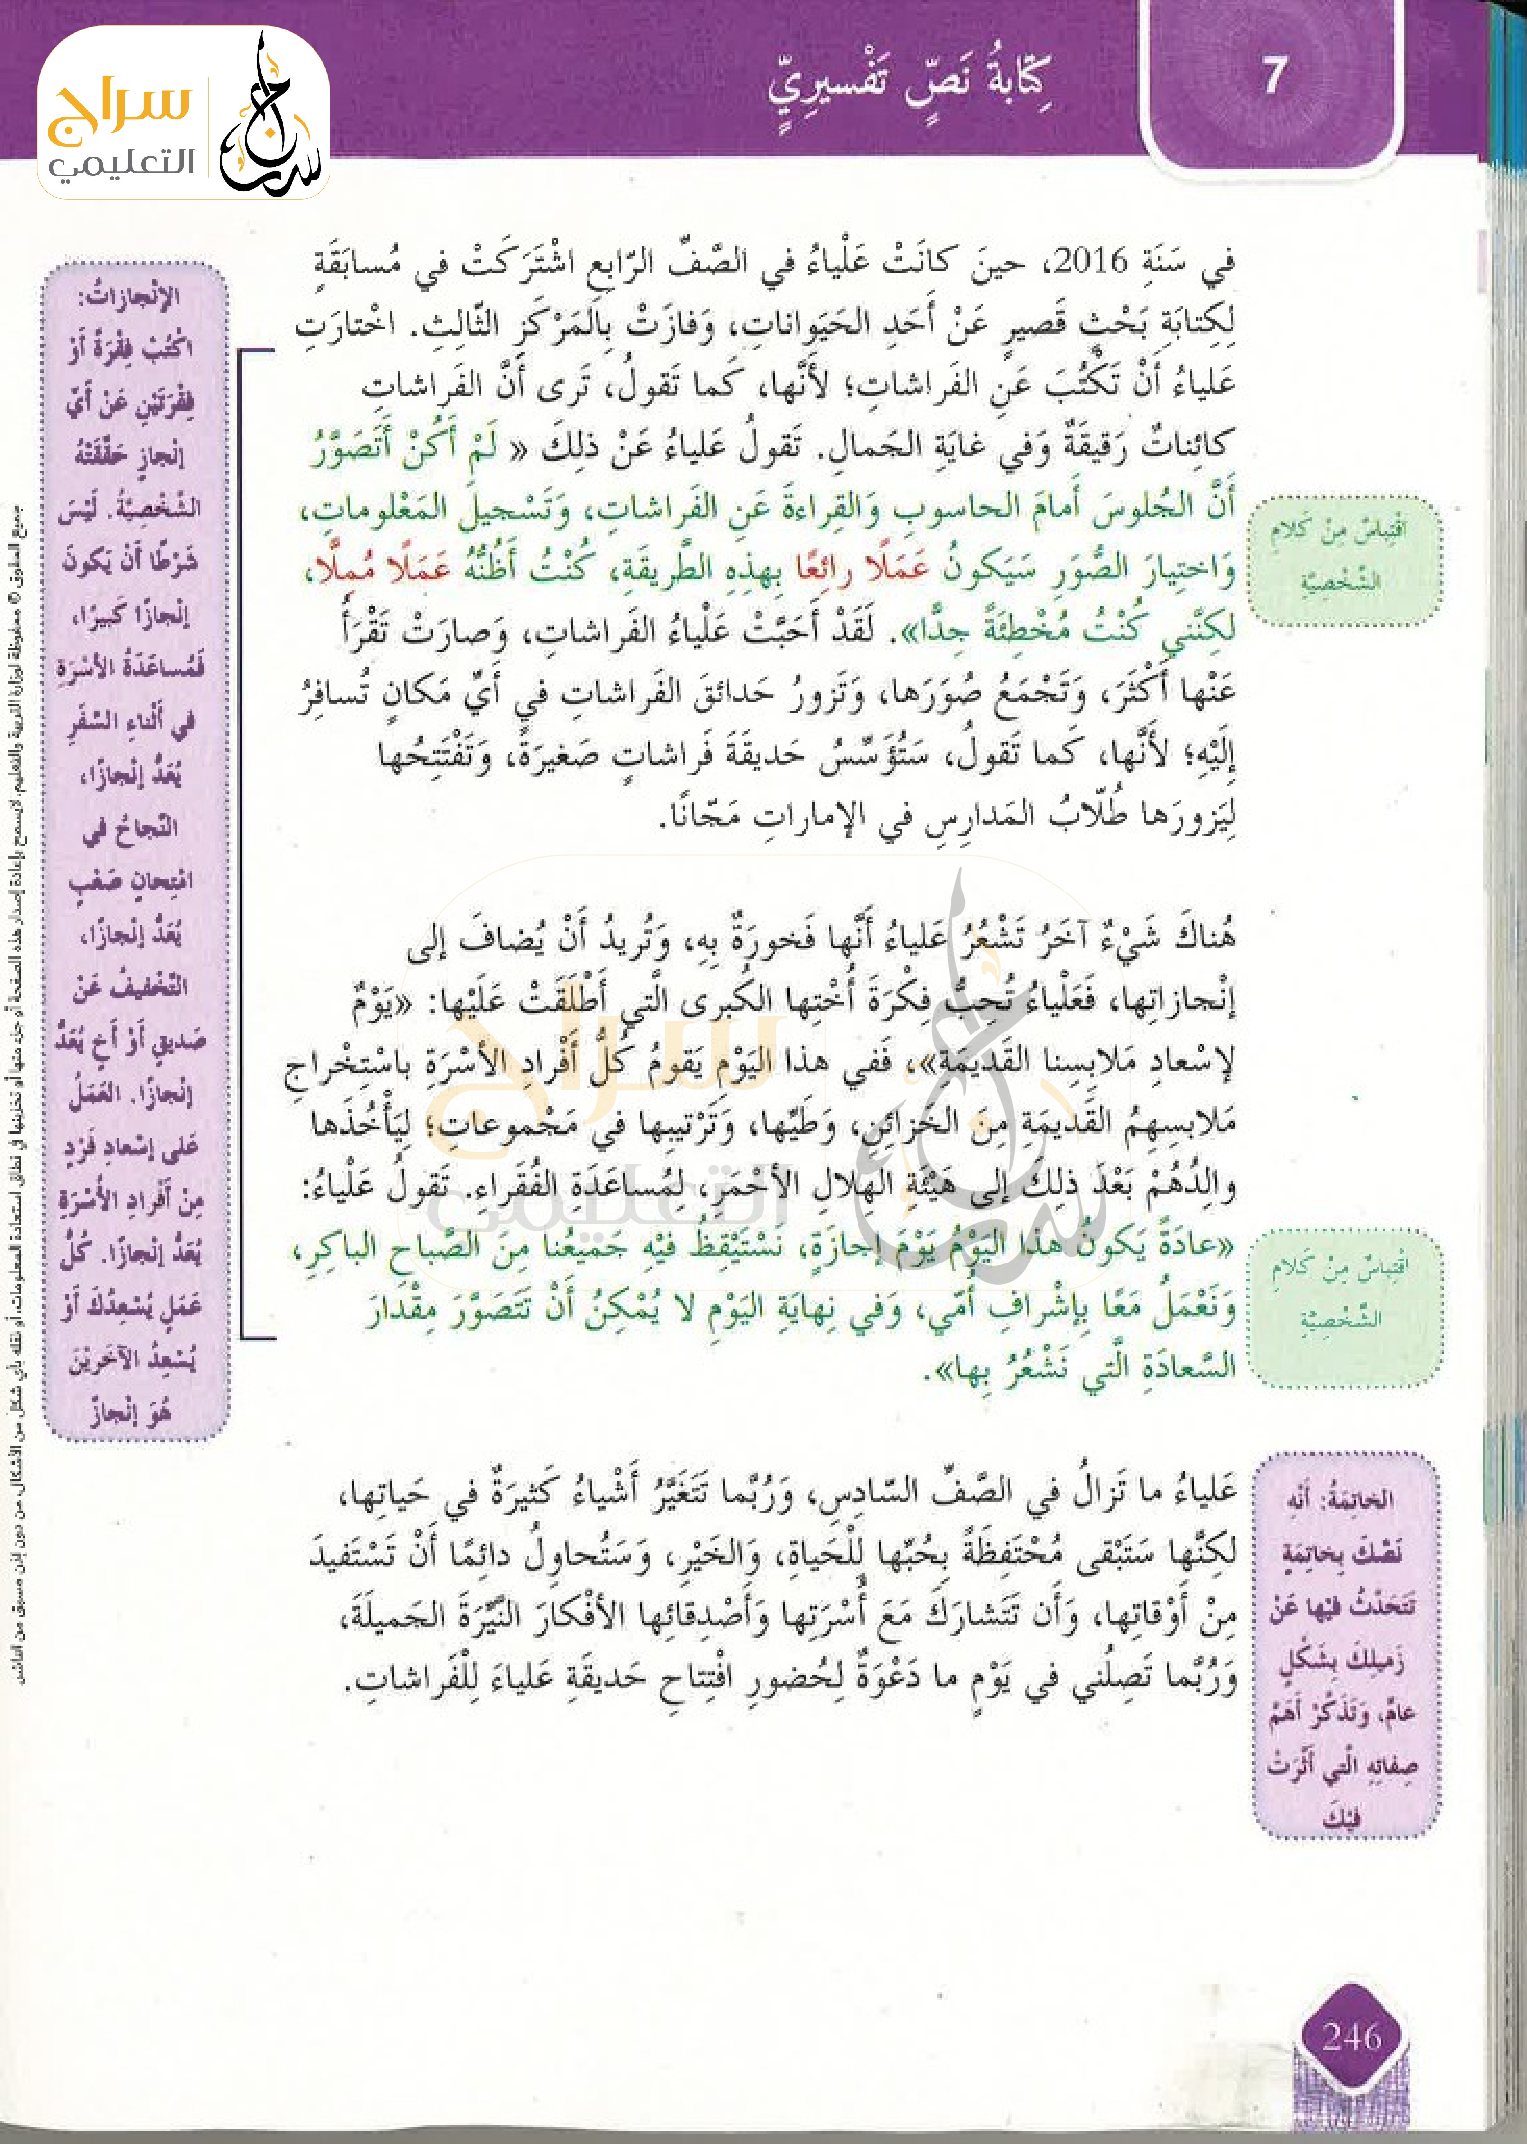 سراج
التعليمي
كِتابةُ نَصٍّ تَفْسيرِيٍّ
7
في سَنَةِ 2016، حينَ كانَتْ عَلْياءُ في الصَّفِّ الرّابِعِ اشْتَرَكَتْ في مُسابَقَةٍ
لِكِتابَةِ بَحْثٍ قَصيرٍ عَنْ أَحَدِ الحَيَواناتِ، وَفازَتْ بِالمَرْكَزِ الثّالِثِ. اخْتارَتِ
عَلياءُ أَنْ تَكْتُبَ عَنِ الفَراشاتِ؛ لأَنَّها، كَما تَقولُ، تَرى أَنَّ الفَراشاتِ
كائِناتٌ رَقيقَةٌ وَفي غايَةِ الجَمالِ. تَقولُ عَلياءُ عَنْ ذلِكَ « لَمْ أَكُنْ أَتَصَوَّرُ
أَنَّ الجُلوسَ أَمامَ الحاسوبِ وَالقِراءةَ عَنِ الفَراشاتِ، وَتَسْجيلَ المَعْلوماتِ،
وَاختِيارَ الصُّوَرِ سَيَكونُ عَمَلًا رائِعًا بِهذِهِ الطَّريقَةِ، كُنْتُ أَظُنُّهُ عَمَلًا مُمِلًّا،
لكِنَّني كُنْتُ مُخْطِئَةً جِدًّا». لَقَدْ أَحَبَّتْ عَلْياءُ الفَراشاتِ، وَصارَتْ تَقْرَأُ
عَنْها أَكْثَرَ، وَتَجْمَعُ صُوَرَها، وَتَزورُ حَدائقَ الفَراشاتِ في أَيِّ مَكانٍ تُسافِرُ
إِلَيْهِ؛ لأَنَّها، كَما تَقولُ، سَتُؤَسِّسُ حَديقَةَ فَراشاتٍ صَغيرَةً، وَتَفْتَتِحُها
لِيَزورَها طُلّابُ المَدارِسِ في الإماراتِ مَجّانًا.
هُناكَ شَيْءٌ آخَرُ تَشْعُرُ عَلياءُ أَنَّها فَخورَةٌ بِهِ، وَتُريدُ أَنْ يُضافَ إلى
إنْجازاتِها، فَعَلْياءُ تُحِبُّ فِكْرَةَ أُخْتِها الكُبرى الَّتي أَطْلَقَتْ عَلَيْها: «يَوْمٌ
لإسْعادِ مَلابِسِنا القَديمَة»، فَفي هذا اليَوْمِ يَقومُ كُلُّ أَفْرادِ الأسْرَةِ باسْتِخْراجِ
مَلابِسِهِمُ القَديمَةِ مِنَ الخَزائِنِ، وَطَيِّها، وَتَرْتيبِها في مَجْموعاتٍ؛ لِيَأْخُذَها
والِدُهُمْ بَعْدَ ذلِكَ إلى هَيْئَةِ الهِلالِ الأحْمَرِ، لِمُساعَدَةِ الفُقَراءِ. تَقولُ عَلْياءُ:
«عادَةً يَكونُ هذا اليَوْمُ يَوْمَ إجازَةٍ، نَسْتَيْقِظُ فيْهِ جَميعُنا مِنَ الصَّباحِ الباكِرِ،
وَنَعْمَلُ مَعًا بِإشْرافِ أُمّي، وَفي نِهايَةِ اليَوْمِ لا يُمْكِنُ أَنْ تَتَصَوَّرَ مِقْدارَ
السَّعادَةِ الَّتي نَشْعُرُ بِها».
عَلياءُ ما تَزالُ في الصَّفِّ السّادِسِ، وَرُبَّما تَتَغَيَّرُ أَشْياءُ كَثيرَةٌ في حَياتِها،
لكِنَّها سَتَبْقى مُحْتَفِظَةً بِحُبِّها لِلْحَياةِ، وَالخَيْرِ، وَسَتُحاوِلُ دائِمًا أَنْ تَسْتَفيدَ
مِنْ أَوْقاتِها، وَأَن تَتَشارَكَ مَعَ أُسْرَتِها وَأَصْدِقائِها الأفْكارَ النَّيِّرَةَ الجَميلَةَ،
وَرُبَّما تَصِلُني في يَوْمٍ ما دَعْوَةٌ لِحُضورِ افْتِتاحِ حَديقَةِ عَلياءَ لِلْفَراشاتِ.
اقْتِباسٌ مِنْ كَلامِ
الشَّخْصِيَّةِ
اقْتِباسٌ مِنْ كَلامِ
الشَّخْصِيَّةِ
الخاتِمَةُ: أَنْهِ
نَصَّكَ بِخاتِمَةٍ
تَتَحَدَّثُ فيْها عَنْ
زَميلِكَ بِشَكْلٍ
عامٍّ، وَتَذْكُرُ أَهَمَّ
صِفاتِهِ الَّتي أَثَّرَتْ
فيْكَ
الإنْجازاتُ:
اكْتُبْ فِقْرَةً أَوْ
فِقْرَتَيْنِ عَنْ أَيِّ
إنْجازٍ حَقَّقَتْهُ
الشَّخْصِيَّةُ. لَيْسَ
شَرْطًا أَنْ يَكونَ
إنْجازًا كَبيرًا،
فَمُساعَدَةُ الأسْرَةِ
في أَثْناءِ السَّفَرِ
يُعَدُّ إنْجازًا،
النَّجاحُ في
امْتِحانٍ صَعْبٍ
يُعَدُّ إنْجازًا،
التَّخْفيفُ عَنْ
صَديقٍ أَوْ أَخٍ يُعَدُّ
إنْجازًا. العَمَلُ
عَلى إسْعادِ فَرْدٍ
مِنْ أَفْرادِ الأُسْرَةِ
يُعَدُّ إنْجازًا. كُلُّ
عَمَلٍ يُسْعِدُكَ أَوْ
يُسْعِدُ الآخَريْنَ
هُوَ إنْجازٌ
جميع الحقوق © محفوظة لوزارة التربية والتعليم. لا يسمح بإعادة إصدار هذه الصفحة أو جزء منها أو تخزينها في نطاق استعادة المعلومات، أو نقله بأي شكل من الأشكال، من دون إذن مسبق من الناشر.
246